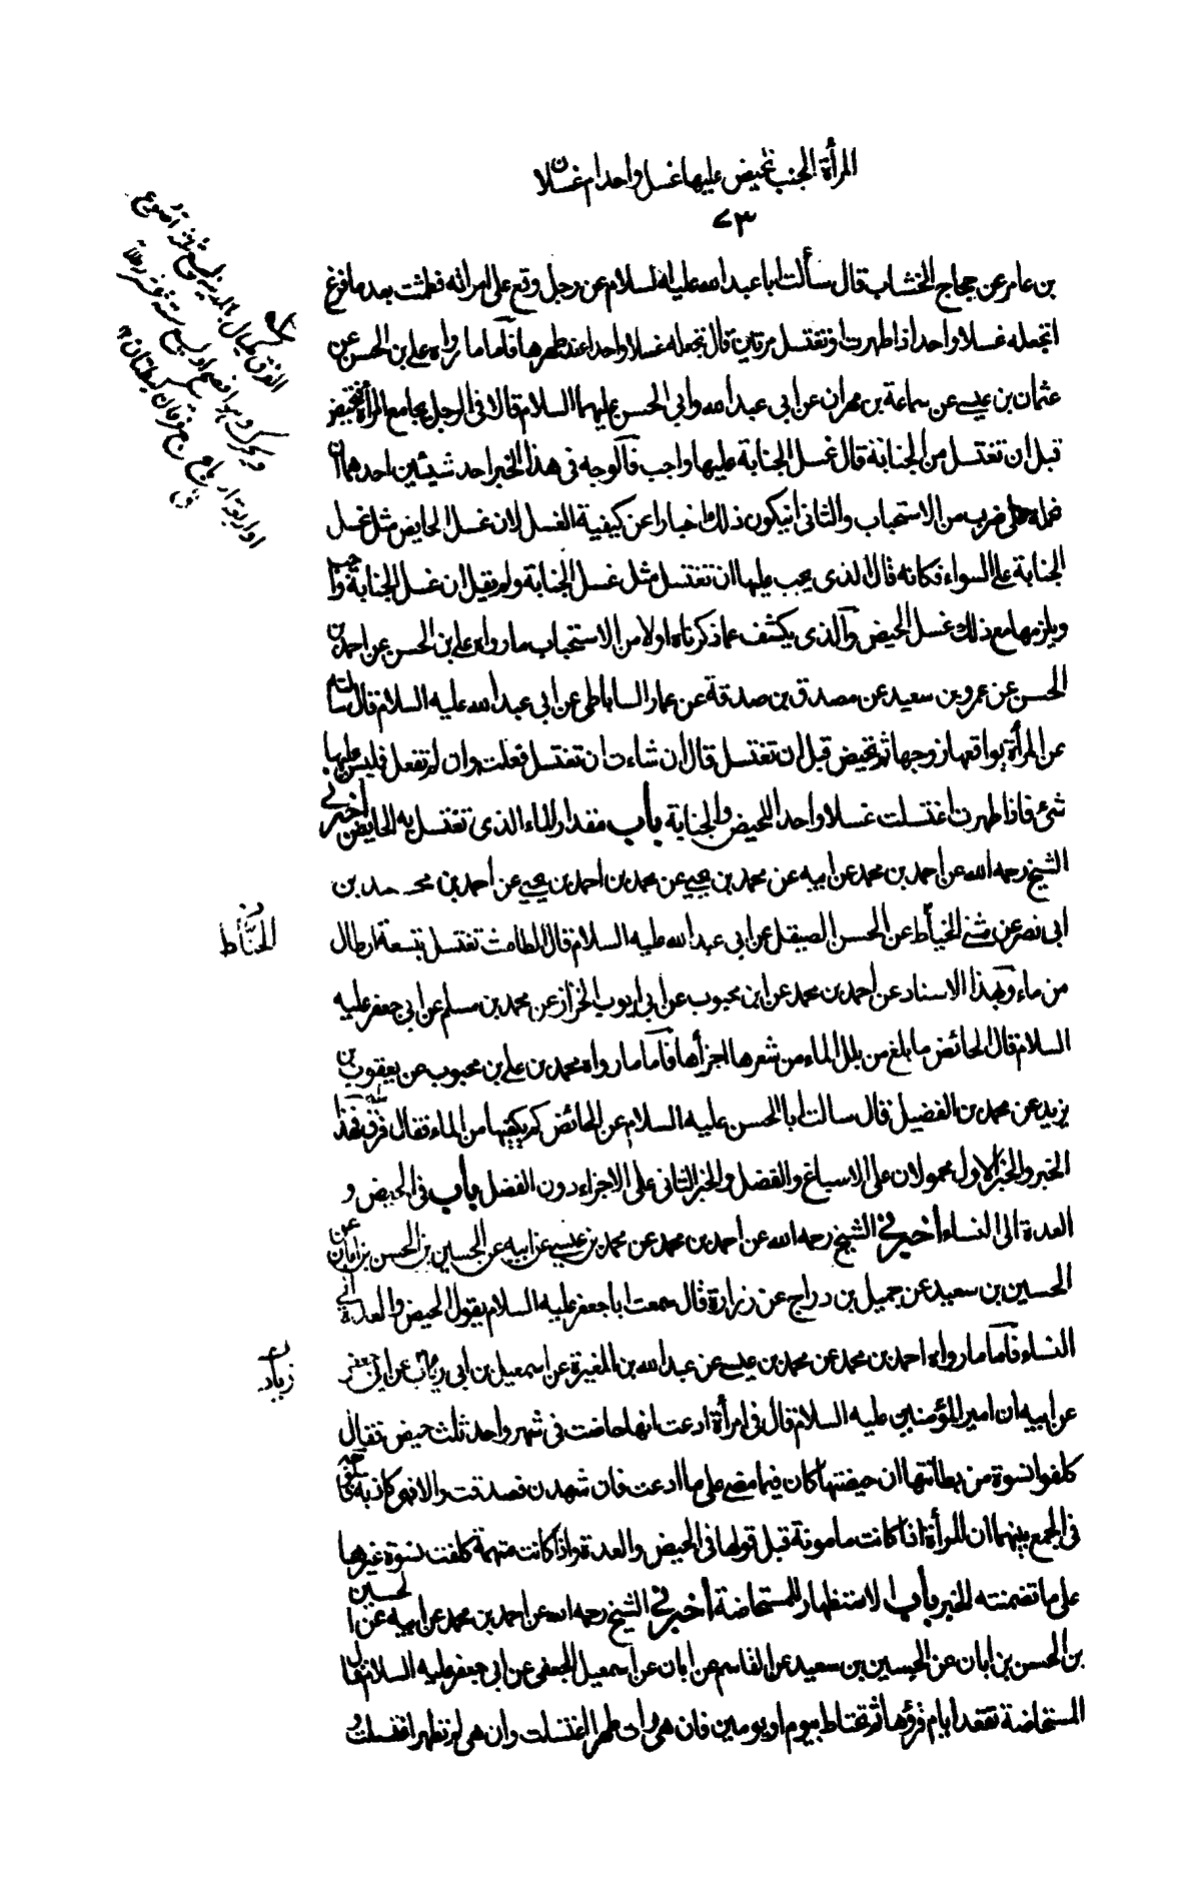 المرأة الجنب تحيض عليها غسل واحد ام غسلان لا
٧٣
بن عامر عن حجاج الخشاب قال سألت ابا عبد الله عليه السلام عن رجل وقع على امراته فطمثت بعد ما فرغ
اتجعله غسلا واحدا اذا طهرت او تغتسل مرتين قال تجعله غسلا واحدا عند طهرها فأما ما رواه علي بن الحسن عن
عثمان بن عيسى عن سماعة بن مهران عن ابى عبد الله وابى الحسن عليهما السلام قالا فى الرجل يجامع المرأة فتحيض
قبل ان تغتسل من الجنابة قال غسل الجنابة عليها واجب فالوجه فى هذا الخبر احد شيئين احدهما ان
نحمله على ضرب من الاستحباب والثانى ان يكون ذلك اخبارا عن كيفية الغسل لان غسل الحايض مثل غسل
الجنابة على السواء فكانه قال الذى يجب عليها ان تغتسل مثل غسل الجنابة ولم يقل ان غسل الجنابة واجب
ويلزمها مع ذلك غسل الحيض والذى يكشف عما ذكرناه اولا من الاستحباب ما رواه علي بن الحسن عن احمد بن
الحسن عن عمرو بن سعيد عن مصدق بن صدقة عن عمار الساباطى عن ابى عبد الله عليه السلام قال سالته
عن المرأة يواقعها زوجها ثم تحيض قبل ان تغتسل قال ان شاءت ان تغتسل فعلت وان لم تفعل فليس عليها
شئ فاذا طهرت اغتسلت غسلا واحدا للحيض والجنابة باب مقدار الماء الذى تغتسل به الحايض اخبرنى
الشيخ رحمه الله عن احمد بن محمد عن ابيه عن محمد بن يحيى عن محمد بن احمد بن يحيى عن احمد بن محمد بن
ابى نصر عن مثنى الخياط عن الحسن الصيقل عن ابى عبد الله عليه السلام قال الطامث تغتسل بتسعة ارطال
من ماء وبهذا الاسناد عن احمد بن محمد عن ابن محبوب عن ابى ايوب الخزاز عن محمد بن مسلم عن ابى جعفر عليه
السلام قال الحائض ما بلغ من بلل الماء من شعرها اجزأها فأما ما رواه محمد بن علي بن محبوب عن يعقوب بن
يزيد عن محمد بن الفضيل قال سالت ابا الحسن عليه السلام عن الحائض كم يكفيها من الماء فقال فرق فهذا
الخبر والخبر الاول محمولان على الاسباغ والفضل والخبر الثانى على الاجزاء دون الفضل باب فى الحيض و
العدة الى النساء اخبرنى الشيخ رحمه الله عن احمد بن محمد عن محمد بن عيسى عن ابيه عن الحسين بن الحسن بن ابان عن
الحسين بن سعيد عن جميل بن دراج عن زرارة قال سمعت ابا جعفر عليه السلام يقول الحيض والعدة الى
النساء فأما ما رواه احمد بن محمد عن محمد بن عيسى عن عبد الله بن المغيرة عن اسمعيل بن ابى زياد عن جعفر
عن ابيه ان امير المؤمنين عليه السلام قال فى امرأة ادعت انها حاضت فى شهر واحد ثلث حيض فقال
كلفوا نسوة من بطانتها ان حيضتها كان فيما مضى على ما ادعت فان شهدن فصدقت والا فهى كاذبة فالوجه
فى الجمع بينهما ان المرأة اذا كانت مامونة قبل قولها فى الحيض والعدة واذا كانت متهمة كلفت نسوة غيرها
على ما تضمنته الخبر باب الاستظهار للمستحاضة اخبرنى الشيخ رحمه الله عن احمد بن محمد عن ابيه عن الحسين
بن الحسن بن ابان عن الحسين بن سعيد عن القاسم عن ابان عن اسمعيل الجعفى عن ابى جعفر عليه السلام قال
المستحاضة تقعد ايام قرؤها ثم تحتاط بيوم او يومين فان هى رات طهرا اغتسلت وان هى لم تطهرا اغتسلت و
الفرق مكيال بالمدينة يسع ثلثة آصوع
ويحرك وهو افصح او يسع ستة عشر رطلا
او اربعة ارباع ج فرقان كبطنان
ق
الحناط
زياد